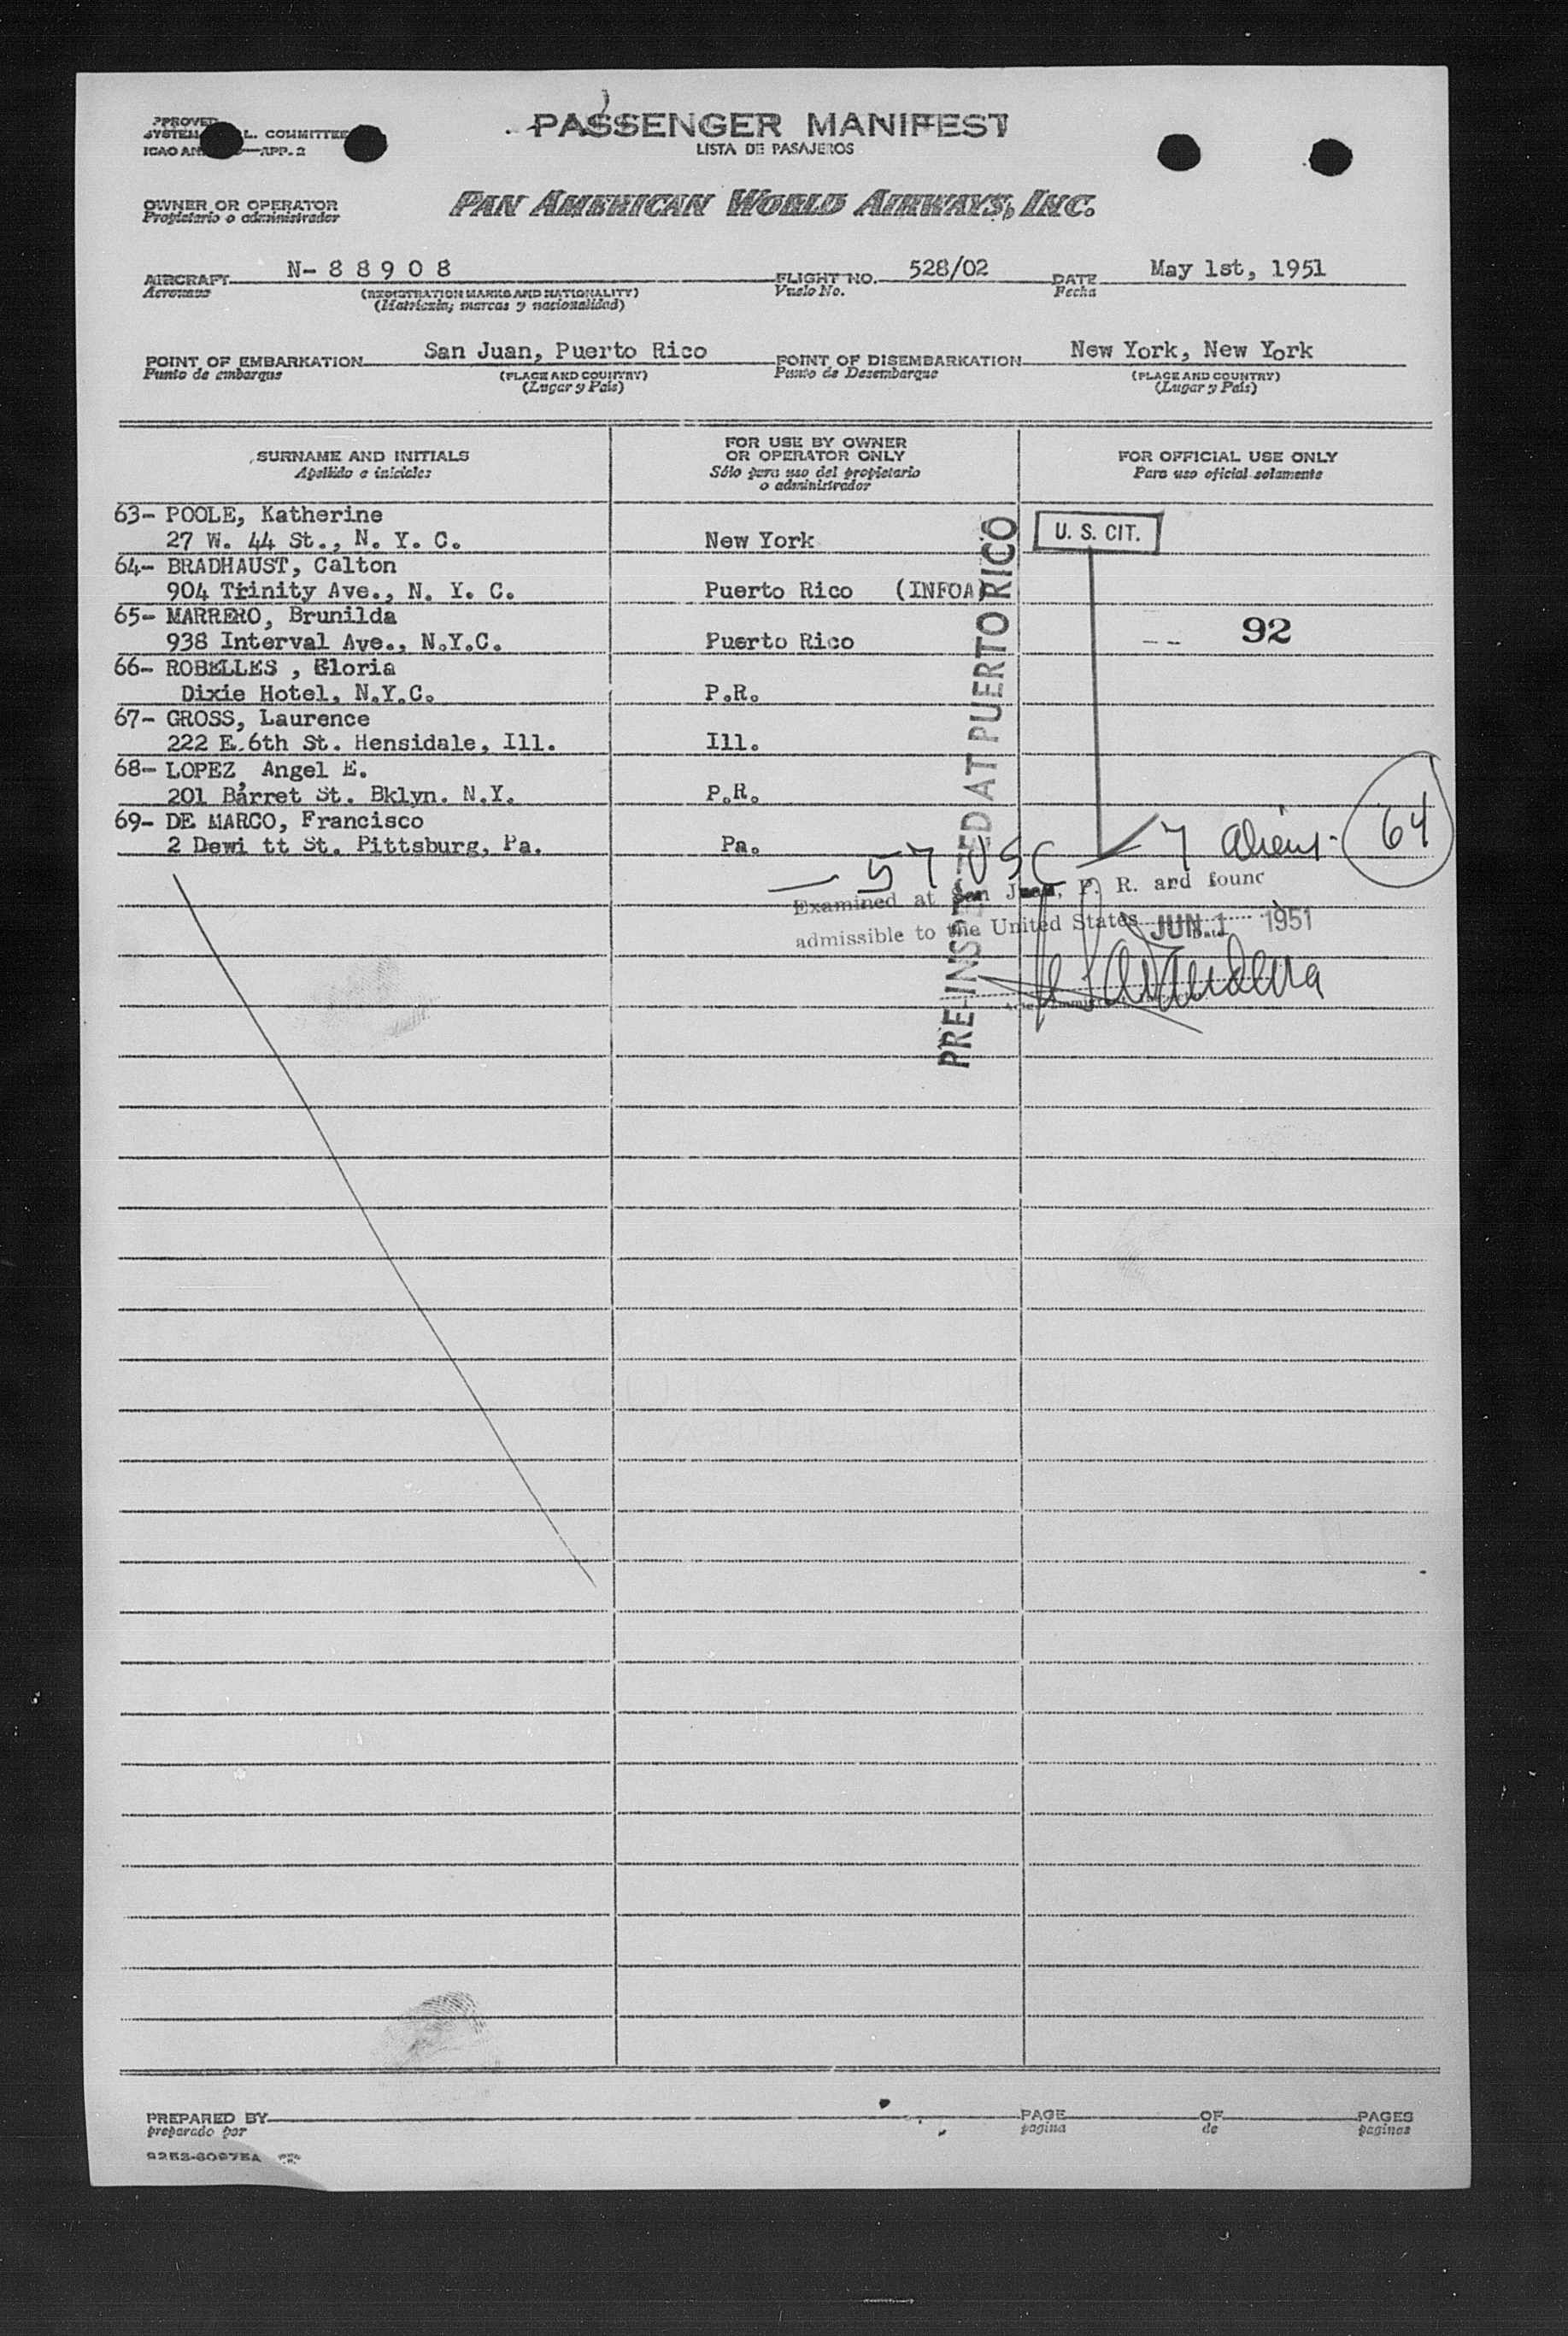 PPROVED
SYSTEM L. COMMITTEE
ICAO AN —APP. 2
PASSENGER MANIFEST
LISTA DE PASAJEROS
OWNER OR OPERATOR
Propietario o administrador
PAN AMERICAN WORLD AIRWAYS, INC.
AIRCRAFT N- 8 8 9 0 8 FLIGHT NO. 528/02 DATE May 1st, 1951
Aeronave (REGISTRATION MARKS AND NATIONALITY) Vuelo No. Fecha
(Matrícula, marcas y nacionalidad)
POINT OF EMBARKATION San Juan, Puerto Rico POINT OF DISEMBARKATION New York, New York
Punto de embarque (PLACE AND COUNTRY) Punto de Desembarque (PLACE AND COUNTRY)
(Lugar y País) (Lugar y País)
SURNAME AND INITIALS
Apellido e iniciales
FOR USE BY OWNER
OR OPERATOR ONLY
Sólo para uso del propietario
o administrador
FOR OFFICIAL USE ONLY
Para uso oficial solamente
63- POOLE, Katherine
27 W. 44 St., N. Y. C. New York
U. S. CIT.
64- BRADHAUST, Calton
904 Trinity Ave., N. Y. C. Puerto Rico (INFOA)
65- MARRERO, Brunilda
938 Interval Ave., N.Y.C. Puerto Rico
92
66- ROBELLES , Gloria
Dixie Hotel, N.Y.C. P.R.
67- GROSS, Laurence
222 E.6th St. Hensidale, Ill. Ill.
68- LOPEZ, Angel E.
201 Barret St. Bklyn. N.Y. P.R.
69- DE MARCO, Francisco
2 Dewi tt St. Pittsburg, Pa. Pa.
PRE-INSPECTED AT PUERTO RICO
57 USC 7 Aliens - 64
Examined at San Juan, P. R. and found
admissible to the United States JUN 1 1951
Date
PREPARED BY PAGE OF PAGES
preparado por pagina de paginas